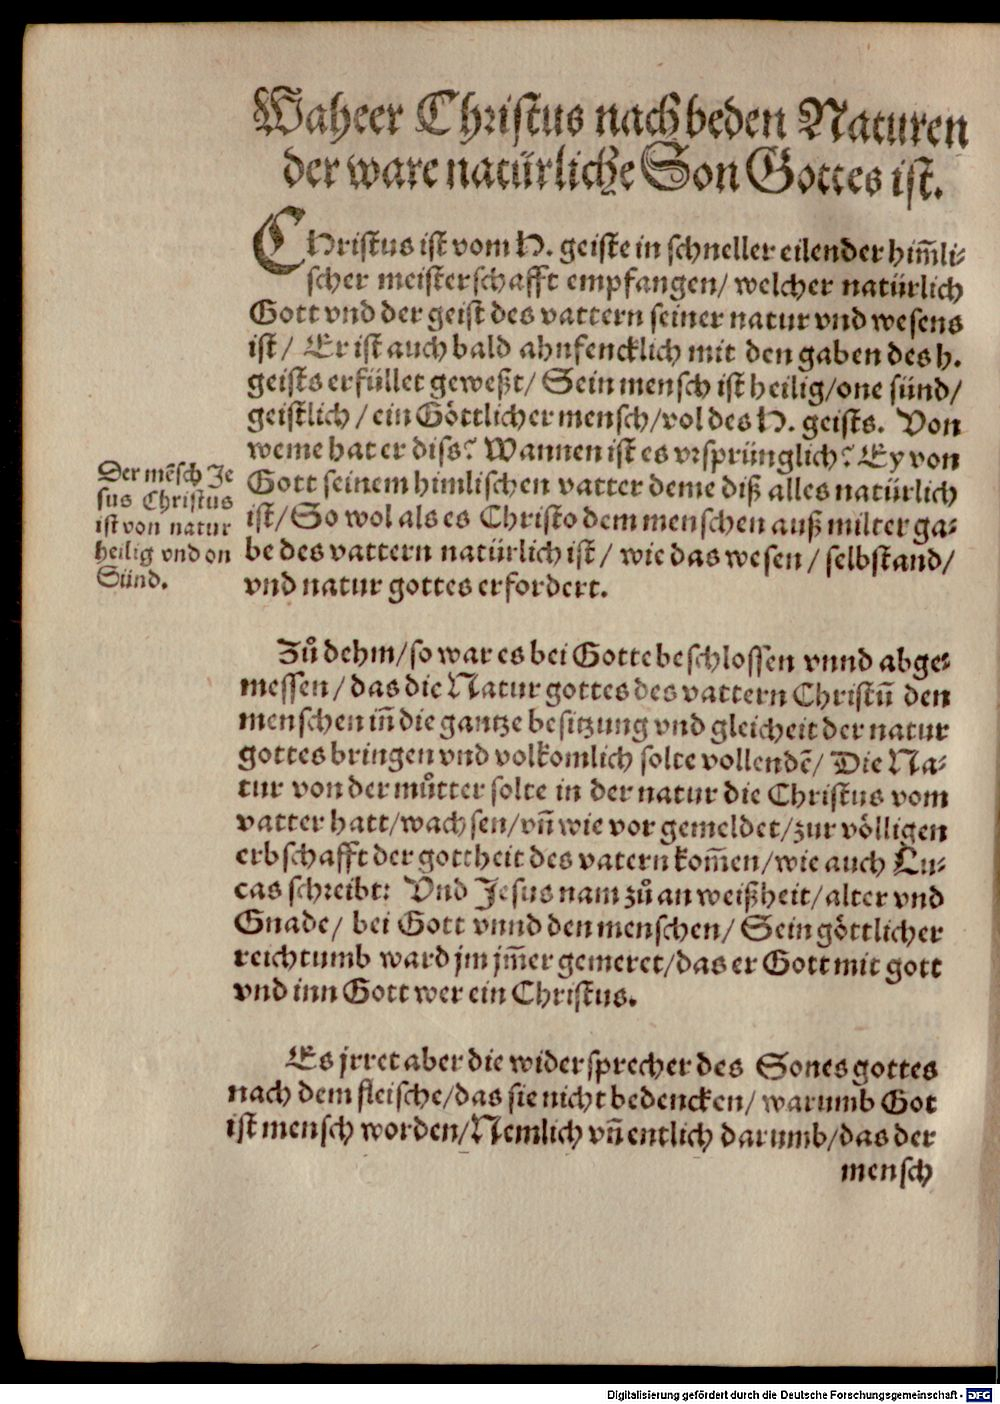 Waheer Christus nach beden Naturen
der ware natürliche Son Gottes ist.
CHristus ist vom H. geiste in schneller eilender him̃li-
scher meisterschafft empfangen/ welcher natürlich
Gott vnd der geist des vattern seiner natur vnd wesens
ist/ Er ist auch bald ahnfencklich mit den gaben des h.
geists erfüllet geweßt/ Sein mensch ist heilig/one sünd/
geistlich/ein Göttlicher mensch/vol des H. geists. Von
weme hat er diss? Wannen ist es vrsprünglich? Ey von
Gott seinem himlischen vatter deme diß alles natürlich
ist/So wol als es Christo dem menschen auß milter ga-
be des vattern natürlich ist/ wie das wesen/ selbstand/
vnd natur gottes erfordert.
Der mẽsch Je
sus Christus
ist von natur
heilig vnd on
Sünd.
Zů dehm/so war es bei Gotte beschlossen vnnd abge-
messen/das die Natur gottes des vattern Christũ den
menschen iñ die gantze besitzung vnd gleicheit der natur
gottes bringen vnd volkomlich solte vollendẽ/ Die Na-
tur von der můtter solte in der natur die Christus vom
vatter hatt/wachsen/vñ wie vor gemeldet/zur völligen
erbschafft der gottheit des vatern kom̃en/wie auch Lu-
cas schreibt: Vnd Jesus nam zů an weißheit/alter vnd
Gnade/ bei Gott vnnd den menschen/ Sein göttlicher
reichtumb ward jm jm̃er gemeret/das er Gott mit gott
vnd inn Gott wer ein Christus.
Es jrret aber die widersprecher des Sones gottes
nach dem fleische/das sie nicht bedencken/ warumb Got
ist mensch worden/Nemlich vñ entlich darumb/das der
mensch
Digitalisierung gefördert durch die Deutsche Forschungsgemeinschaft - DFG